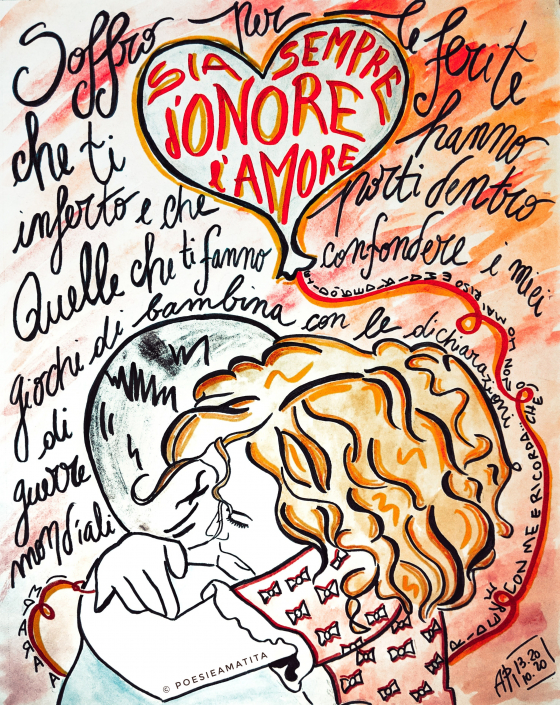 Soffro per le ferite
che ti hanno
inferto e che porti dentro
Quelle che ti fanno confondere i miei
giochi di bambina con le dichiarazioni
di
guerre
mondiali
SIA SEMPRE
d'ONORE
l'AMORE
CON ME E RICORDA... CHE
IO NON HO MAI RISO
© POESIEAMATITA